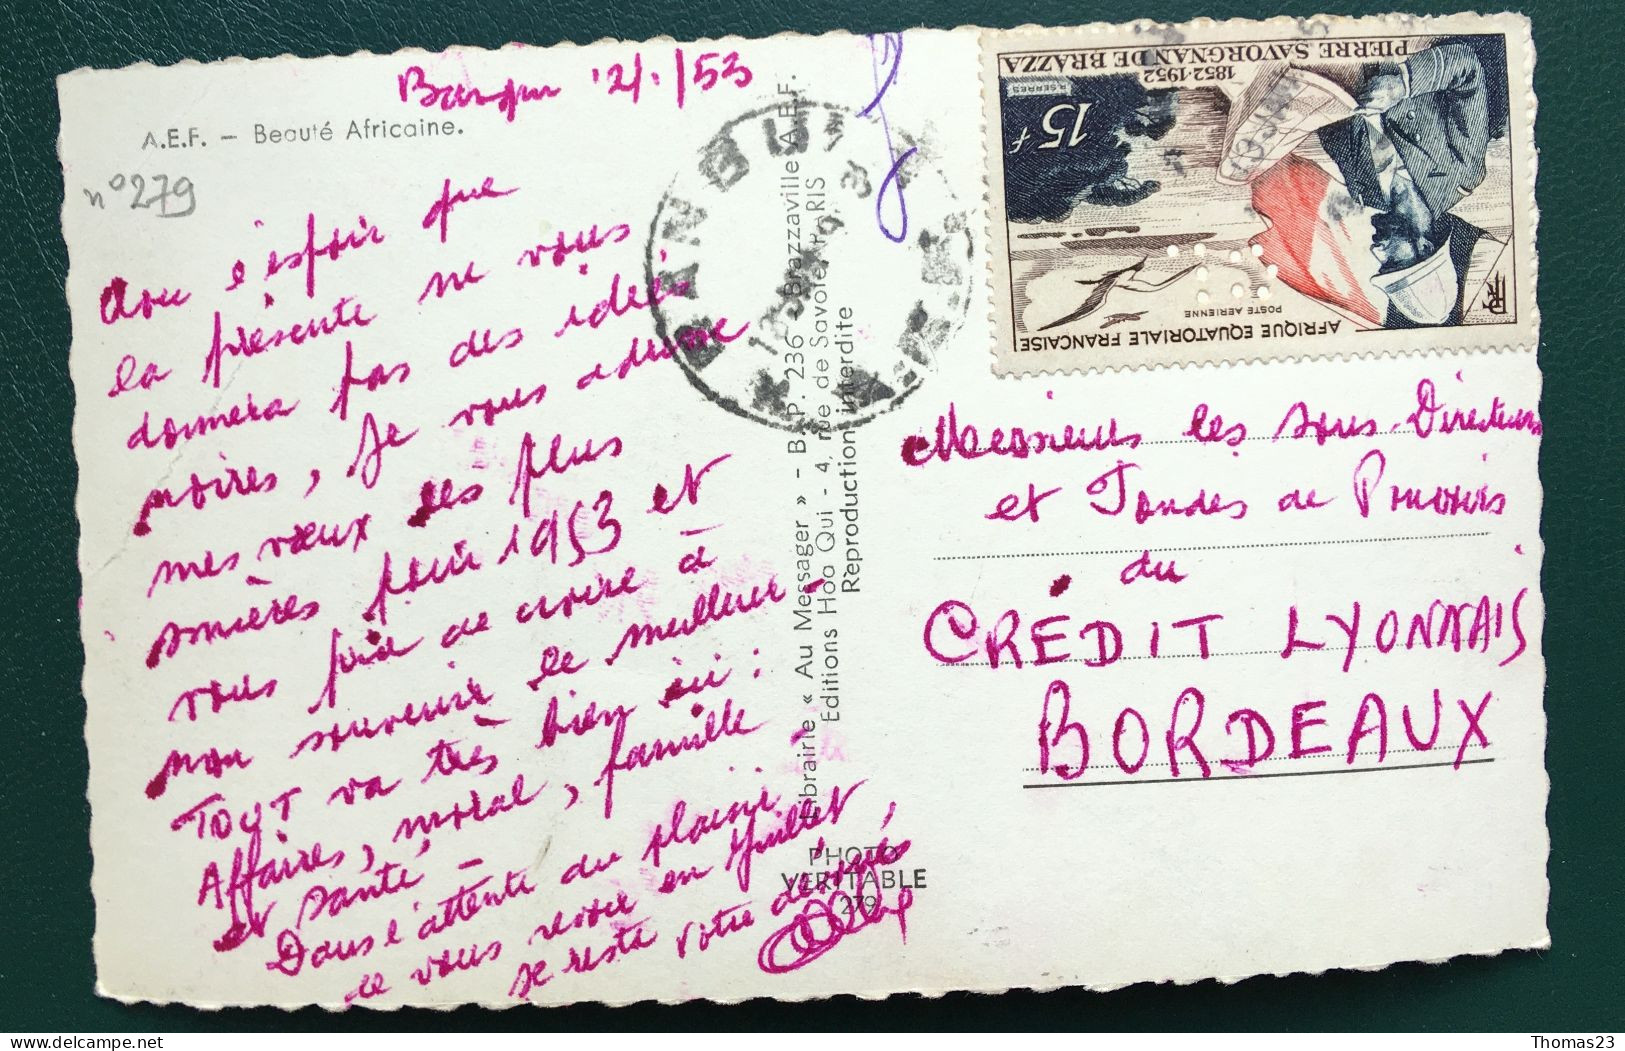 /53
A.E.F. — Beauté Africaine.
n° 279
l'espoir que
la présente ne vous
donnera pas des idées
noires, je vous adresse
mes vœux les plus
sincères pour 1953 et
vous prie de croire à
mon souvenir le meilleur -
TOUT va très bien ici :
Affaires, moral, famille -
et santé -
Dans l'attente du plaisir
de vous revoir en juillet,
je reste votre dévoué
BANGUI
Librairie « Au Messager » - B.P. 236 - Brazzaville A.E.F.
Editions Hoa Qui - 4, rue de Savoie, PARIS
Reproduction interdite
PHOTO
VERITABLE
279
PIERRE SAVORGNAN DE BRAZZA
1852-1952
R. SERRES
15 F
POSTE AERIENNE
AFRIQUE EQUATORIALE FRANCAISE
RF
Messieurs les Sous-Directeurs
et Fondés de Pouvoirs
du
CRÉDIT LYONNAIS
BORDEAUX
Thomas23